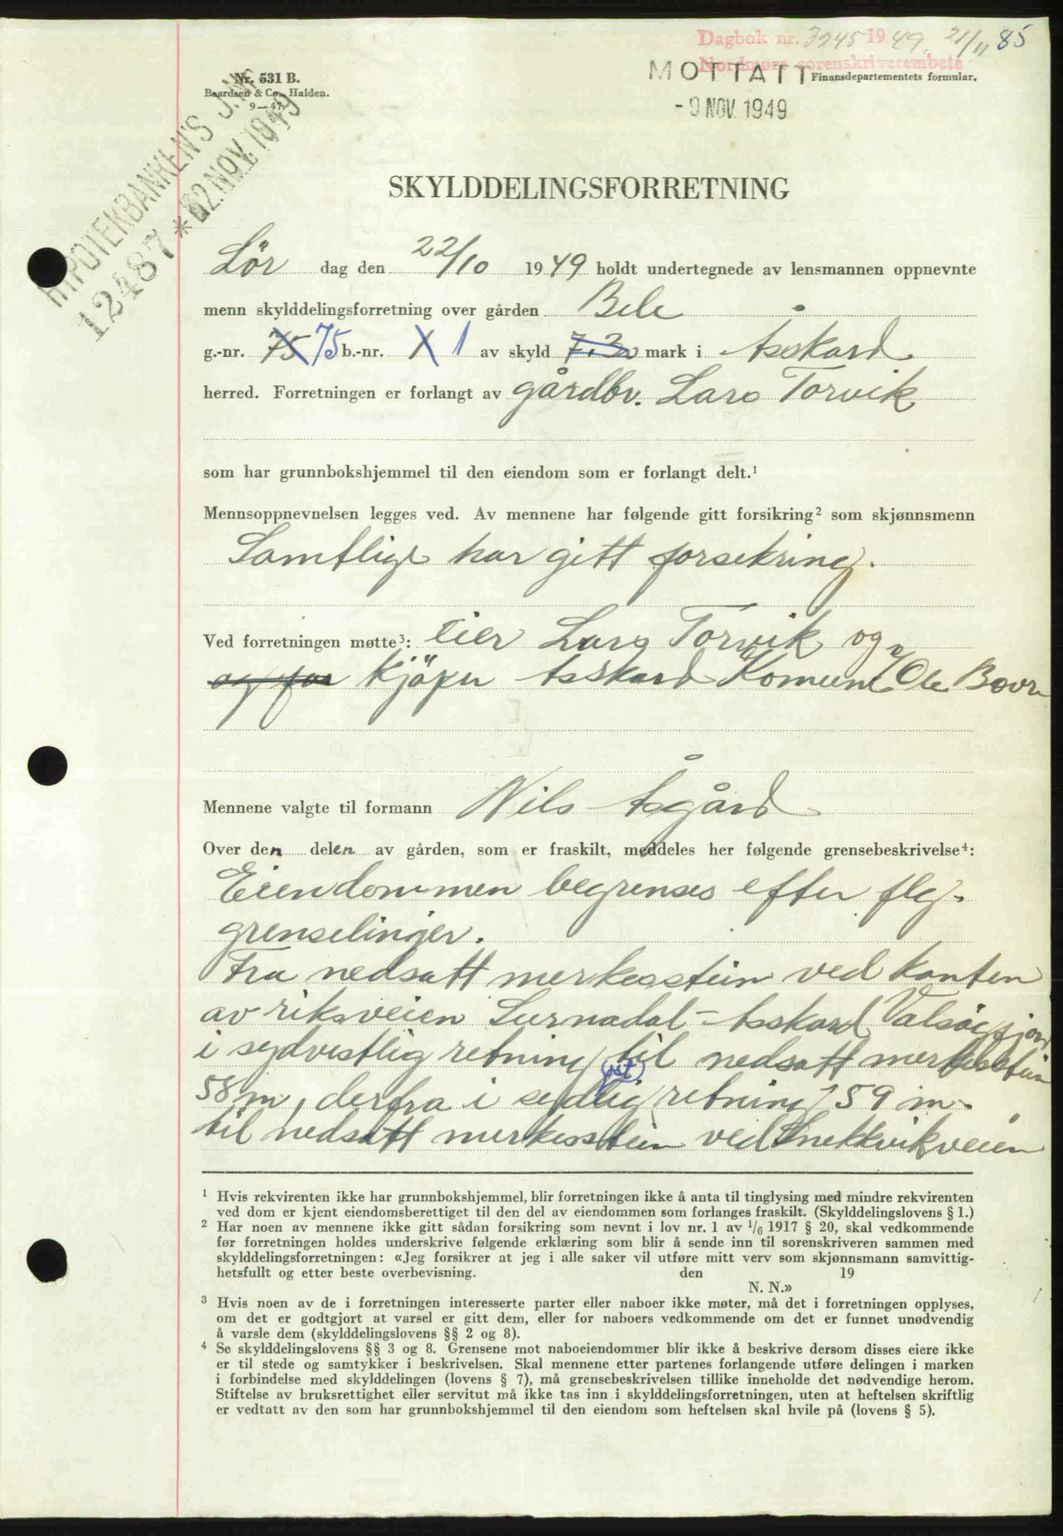 Dagbok nr. 3245 1949. 21/11 85
Nordmøre sorenskriverembete
MOTTATT
- 9 NOV. 1949
Finansdepartementets formular.
Nr. 531 B.
Baardsen & Co., Halden.
9—47
HYPOTEKBANKEN'S J.NR.
12487 * 22.NOV.1949
SKYLDDELINGSFORRETNING
Lör dag den 22/10 1949 holdt undertegnede av lensmannen oppnevnte
menn skylddelingsforretning over gården Bele
g.-nr. 75 75 b.-nr. 1 1 av skyld 7.30 mark i Åsskard
herred. Forretningen er forlangt av gårdbr. Lars Torvik
som har grunnbokshjemmel til den eiendom som er forlangt delt.¹
Mennsoppnevnelsen legges ved. Av mennene har følgende gitt forsikring² som skjønnsmenn
Samtlige har gitt forsekring.
Ved forretningen møtte³: eier Lars Torvik og
og for kjöper Åsskard Komune v/ Ole Bøvr
Mennene valgte til formann Nils Åsgård
Over den delen av gården, som er fraskilt, meddeles her følgende grensebeskrivelse⁴:
Eiendommen begrenses efter flg.
grenselinjer.
Fra nedsatt merkesstein ved kanten
av riksveien Surnadal - Åsskard Valsöyfjord
i sydvestlig retning til nedsatt merkesstein
58 m, derfra i sydlig retning 59 m.
til nedsatt merkesstein ved Snekkvikveien
¹ Hvis rekvirenten ikke har grunnbokshjemmel, blir forretningen ikke å anta til tinglysing med mindre rekvirenten
ved dom er kjent eiendomsberettiget til den del av eiendommen som forlanges fraskilt. (Skylddelingslovens § 1.)
² Har noen av mennene ikke gitt sådan forsikring som nevnt i lov nr. 1 av 1/6 1917 § 20, skal vedkommende
før forretningen holdes underskrive følgende erklæring som blir å sende inn til sorenskriveren sammen med
skylddelingsforretningen: «Jeg forsikrer at jeg i alle saker vil utføre mitt verv som skjønnsmann samvittig-
hetsfullt og etter beste overbevisning. den 19
N. N.»
³ Hvis noen av de i forretningen interesserte parter eller naboer ikke møter, må det i forretningen opplyses,
om det er godtgjort at varsel er gitt dem, eller for naboers vedkommende om det er funnet unødvendig
å varsle dem (skylddelingslovens §§ 2 og 8).
⁴ Se skylddelingslovens §§ 3 og 8. Grensene mot naboeiendommer blir ikke å beskrive dersom disses eiere ikke
er til stede og samtykker i beskrivelsen. Skal mennene etter partenes forlangende utføre delingen i marken
i forbindelse med skylddelingen (lovens § 7), må grensebeskrivelsen tillike inneholde det nødvendige herom.
Stiftelse av bruksrettighet eller servitut må ikke tas inn i skylddelingsforretningen, uten at heftelsen skriftlig
er vedtatt av den som har grunnbokshjemmel til den eiendom som heftelsen skal hvile på (lovens § 5).